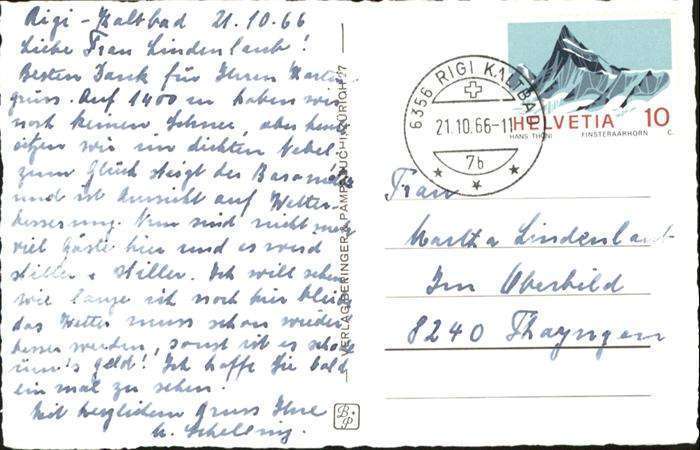 Rigi-Kaltbad 21.10.66
Liebe Frau Lindenlaub!
Besten Dank für Ihren Karten-
gruss. Auf 1400 m haben wir
noch keinen Schnee, aber heute
sitzen wir im dichten Nebel
zum Glück steigt das Barometer
und ist Aussicht auf Wetter-
besserung. Nun sind nicht mehr
viel Gäste hier und es wird
stiller & stiller. Ich will sehen
wie lange ich noch hier bleibe
das Wetter muss schon wieder
besser werden, sonst ist es schade
ùm's Geld! Ich hoffe Sie bald
einmal zu sehen.
Mit herzlichem Gruss Ihre
M. Schelling.
VERLAG BERINGER & PAMPALUCHI ZÜRICH 27
B+P
6356 RIGI KALTBAD
21.10.66-11
7b
HELVETIA 10
HANS THÖNI FINSTERAARHORN C.
Frau
Martha Lindenlaub
Im Oberbild
8240 Thayngen